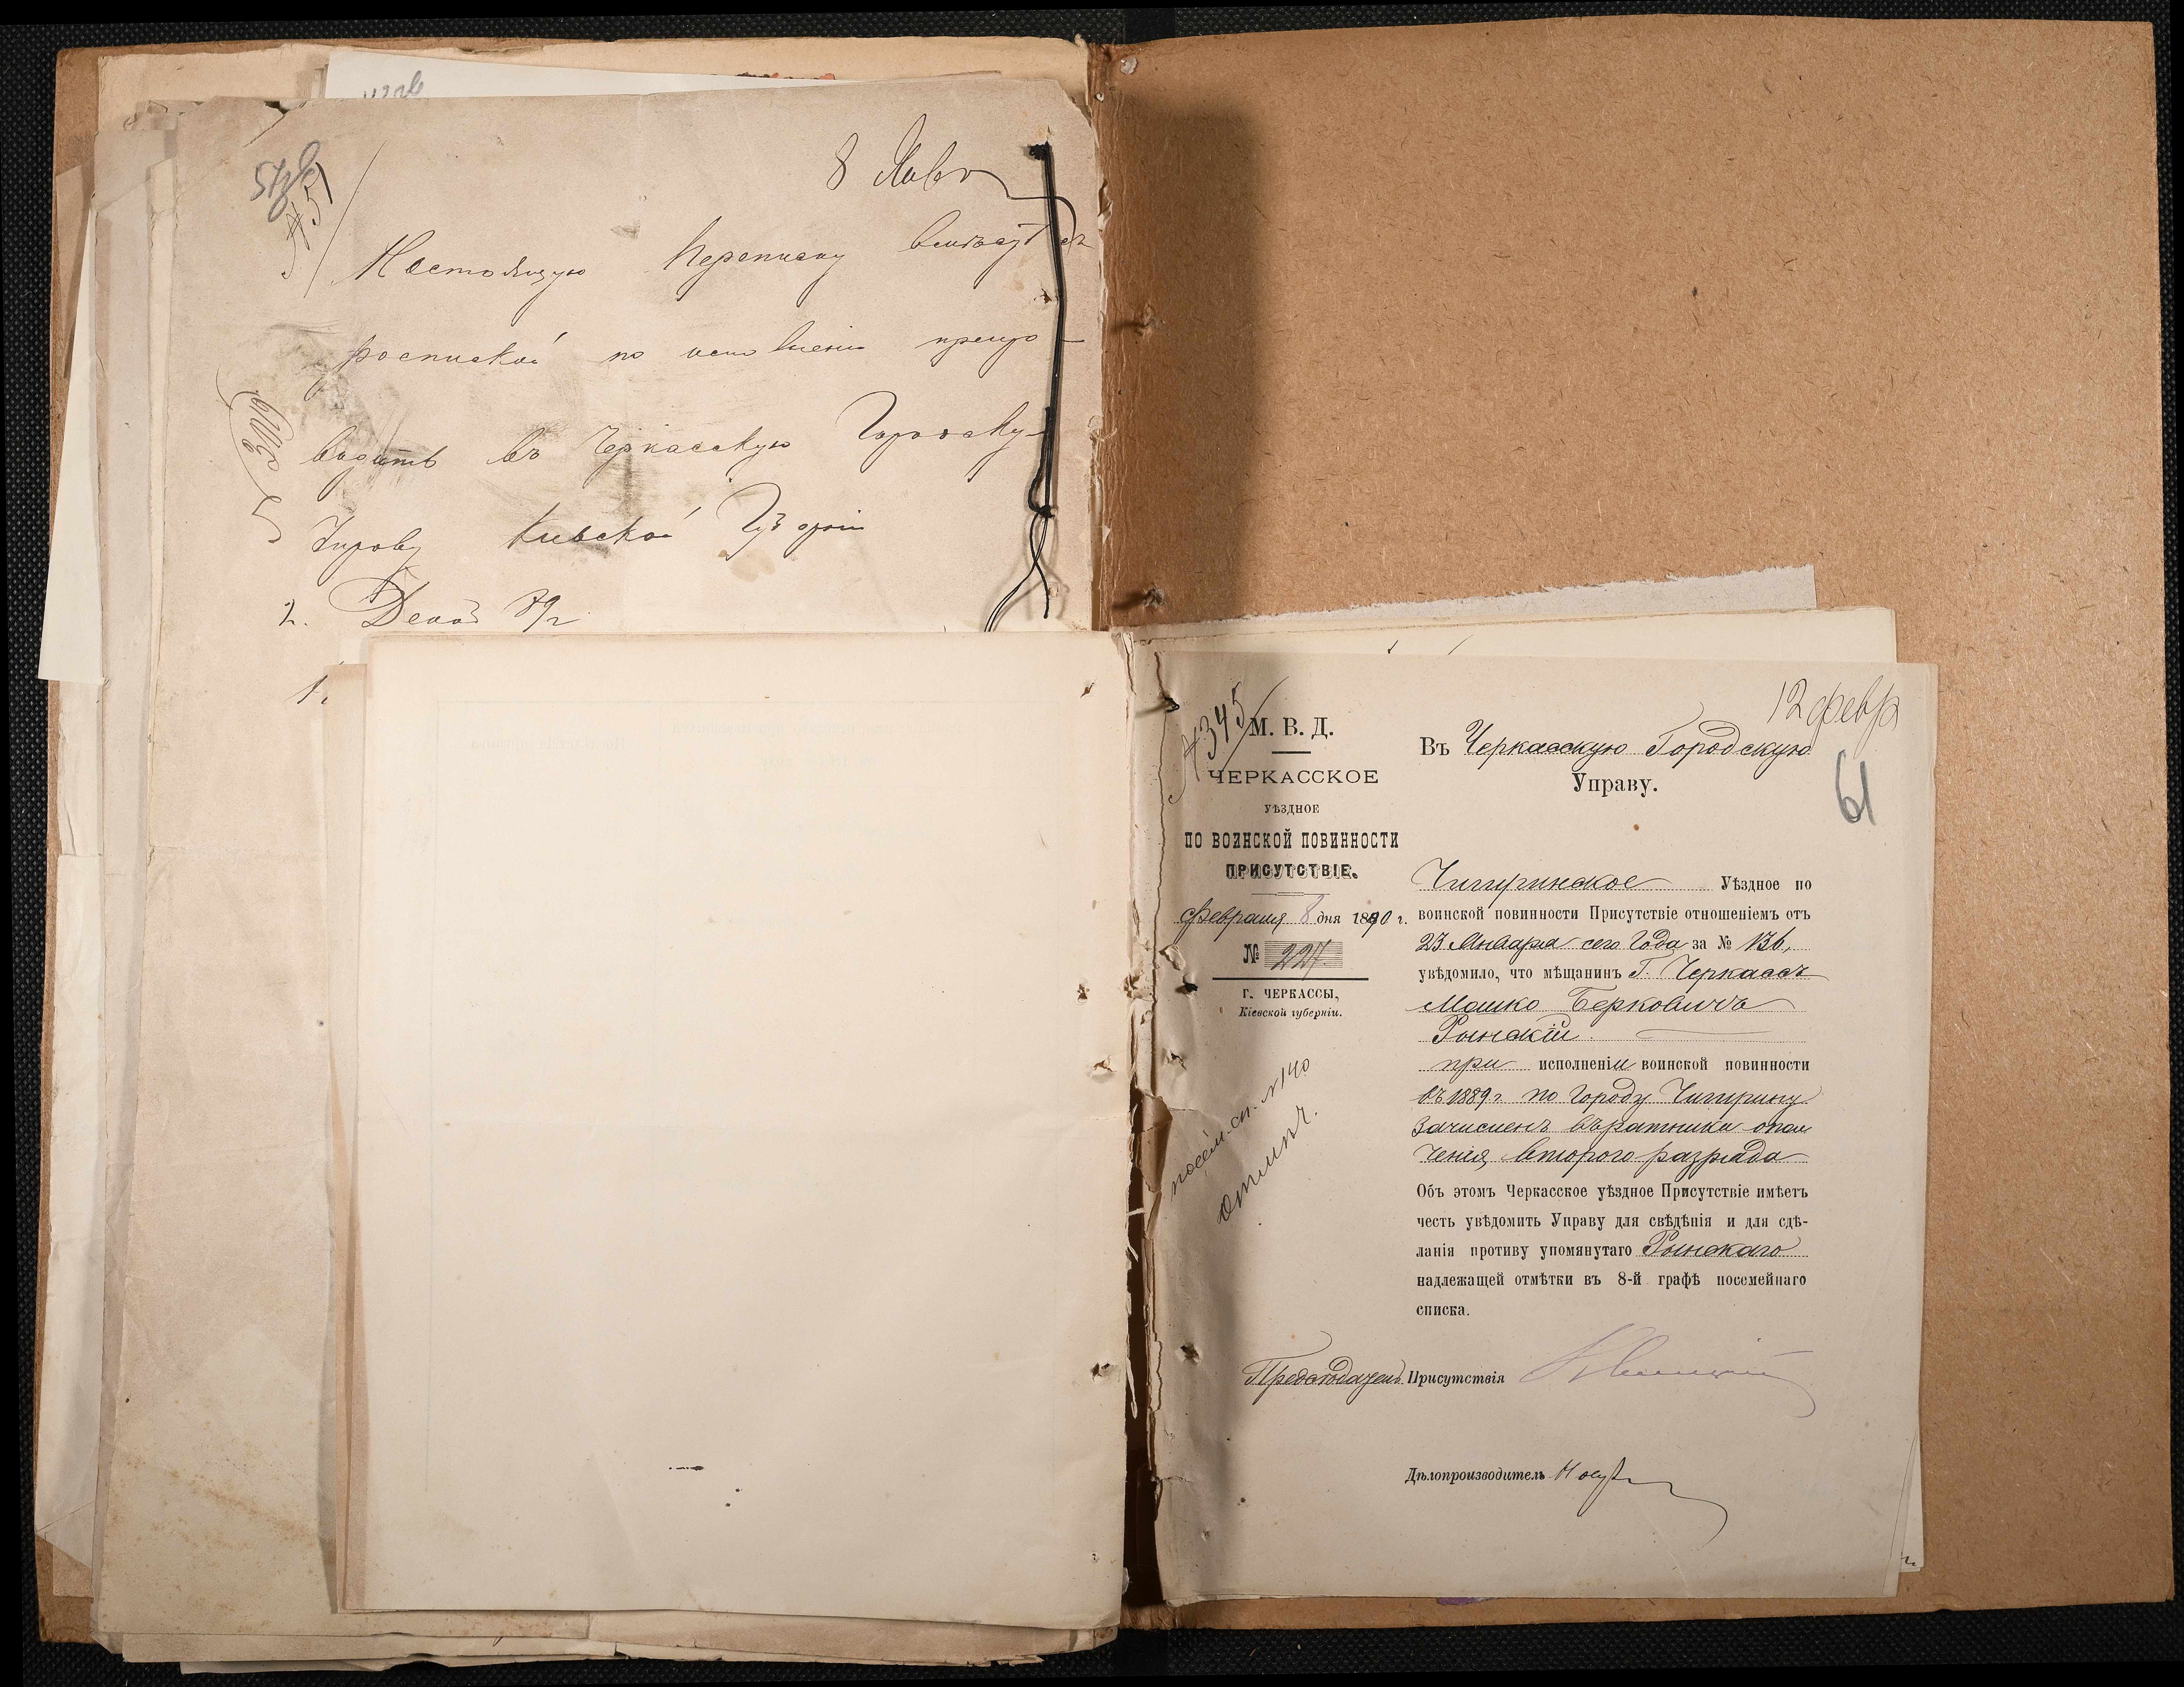 8 Янв
№ 51
Настоящую переписку вместѣ съ
роспиской по исполненiи препро-
водить въ Черкасскую Городскую
Управу Кiевской Губернiи
2. Декаб 89 г
1.
№ 345
12 февр
61
М. В. Д.
ЧЕРКАССКОЕ
УѢЗДНОЕ
ПО ВОИНСКОЙ ПОВИННОСТИ
ПРИСУТСТВІЕ.
Февраля 8 дня 1890 г.
№ 227.
Г. ЧЕРКАССЫ,
Кіевской губерніи.
посем. сп. №140
Отмѣч.
Въ Черкасскую Городскую
Управу.
Чигиринское Уѣздное по
воинской повинности Присутствіе отношеніемъ отъ
23 Января сего Года за № 136,
увѣдомило, что мѣщанинъ Г. Черкассъ
Мошко Берковичъ
Рынскій.
при исполненіи воинской повинности
въ 1889 г. по Городу Чигирину
зачисленъ въ ратники опол
ченія второго разряда
Объ этомъ Черкасское уѣздное Присутствіе имѣетъ
честь увѣдомить Управу для свѣдѣнія и для сдѣ-
ланія противу упомянутаго Рынскаго
надлежащей отмѣтки въ 8-й графѣ посемейнаго
списка.
Предсѣдатель Присутствія
Дѣлопроизводитель